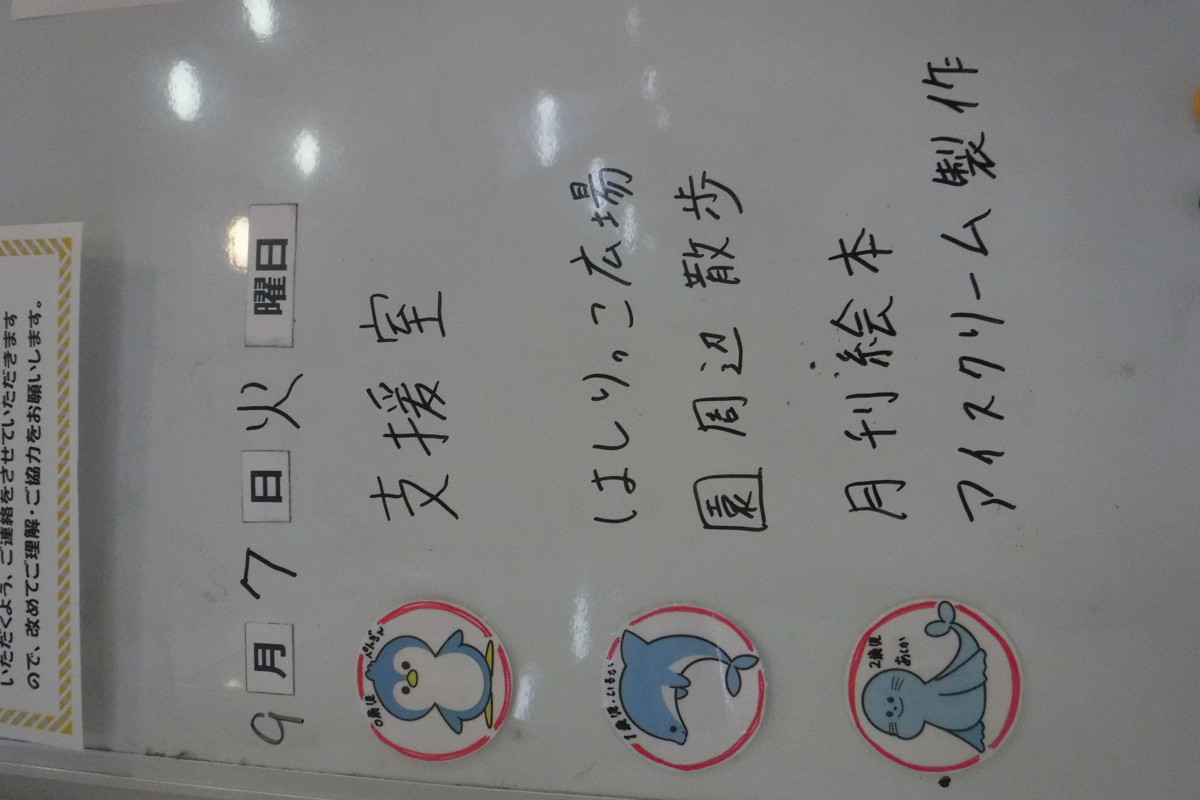 いただくよう、ご連絡をさせていただきます
ので、改めてご理解・ご協力をお願いします。
9月7日火曜日
0歳児 ぺんぎん
支援室
1歳児・いるか
はしりっこ広場
園周辺散歩
2歳児 あしか
月刊絵本
アイスクリーム製作